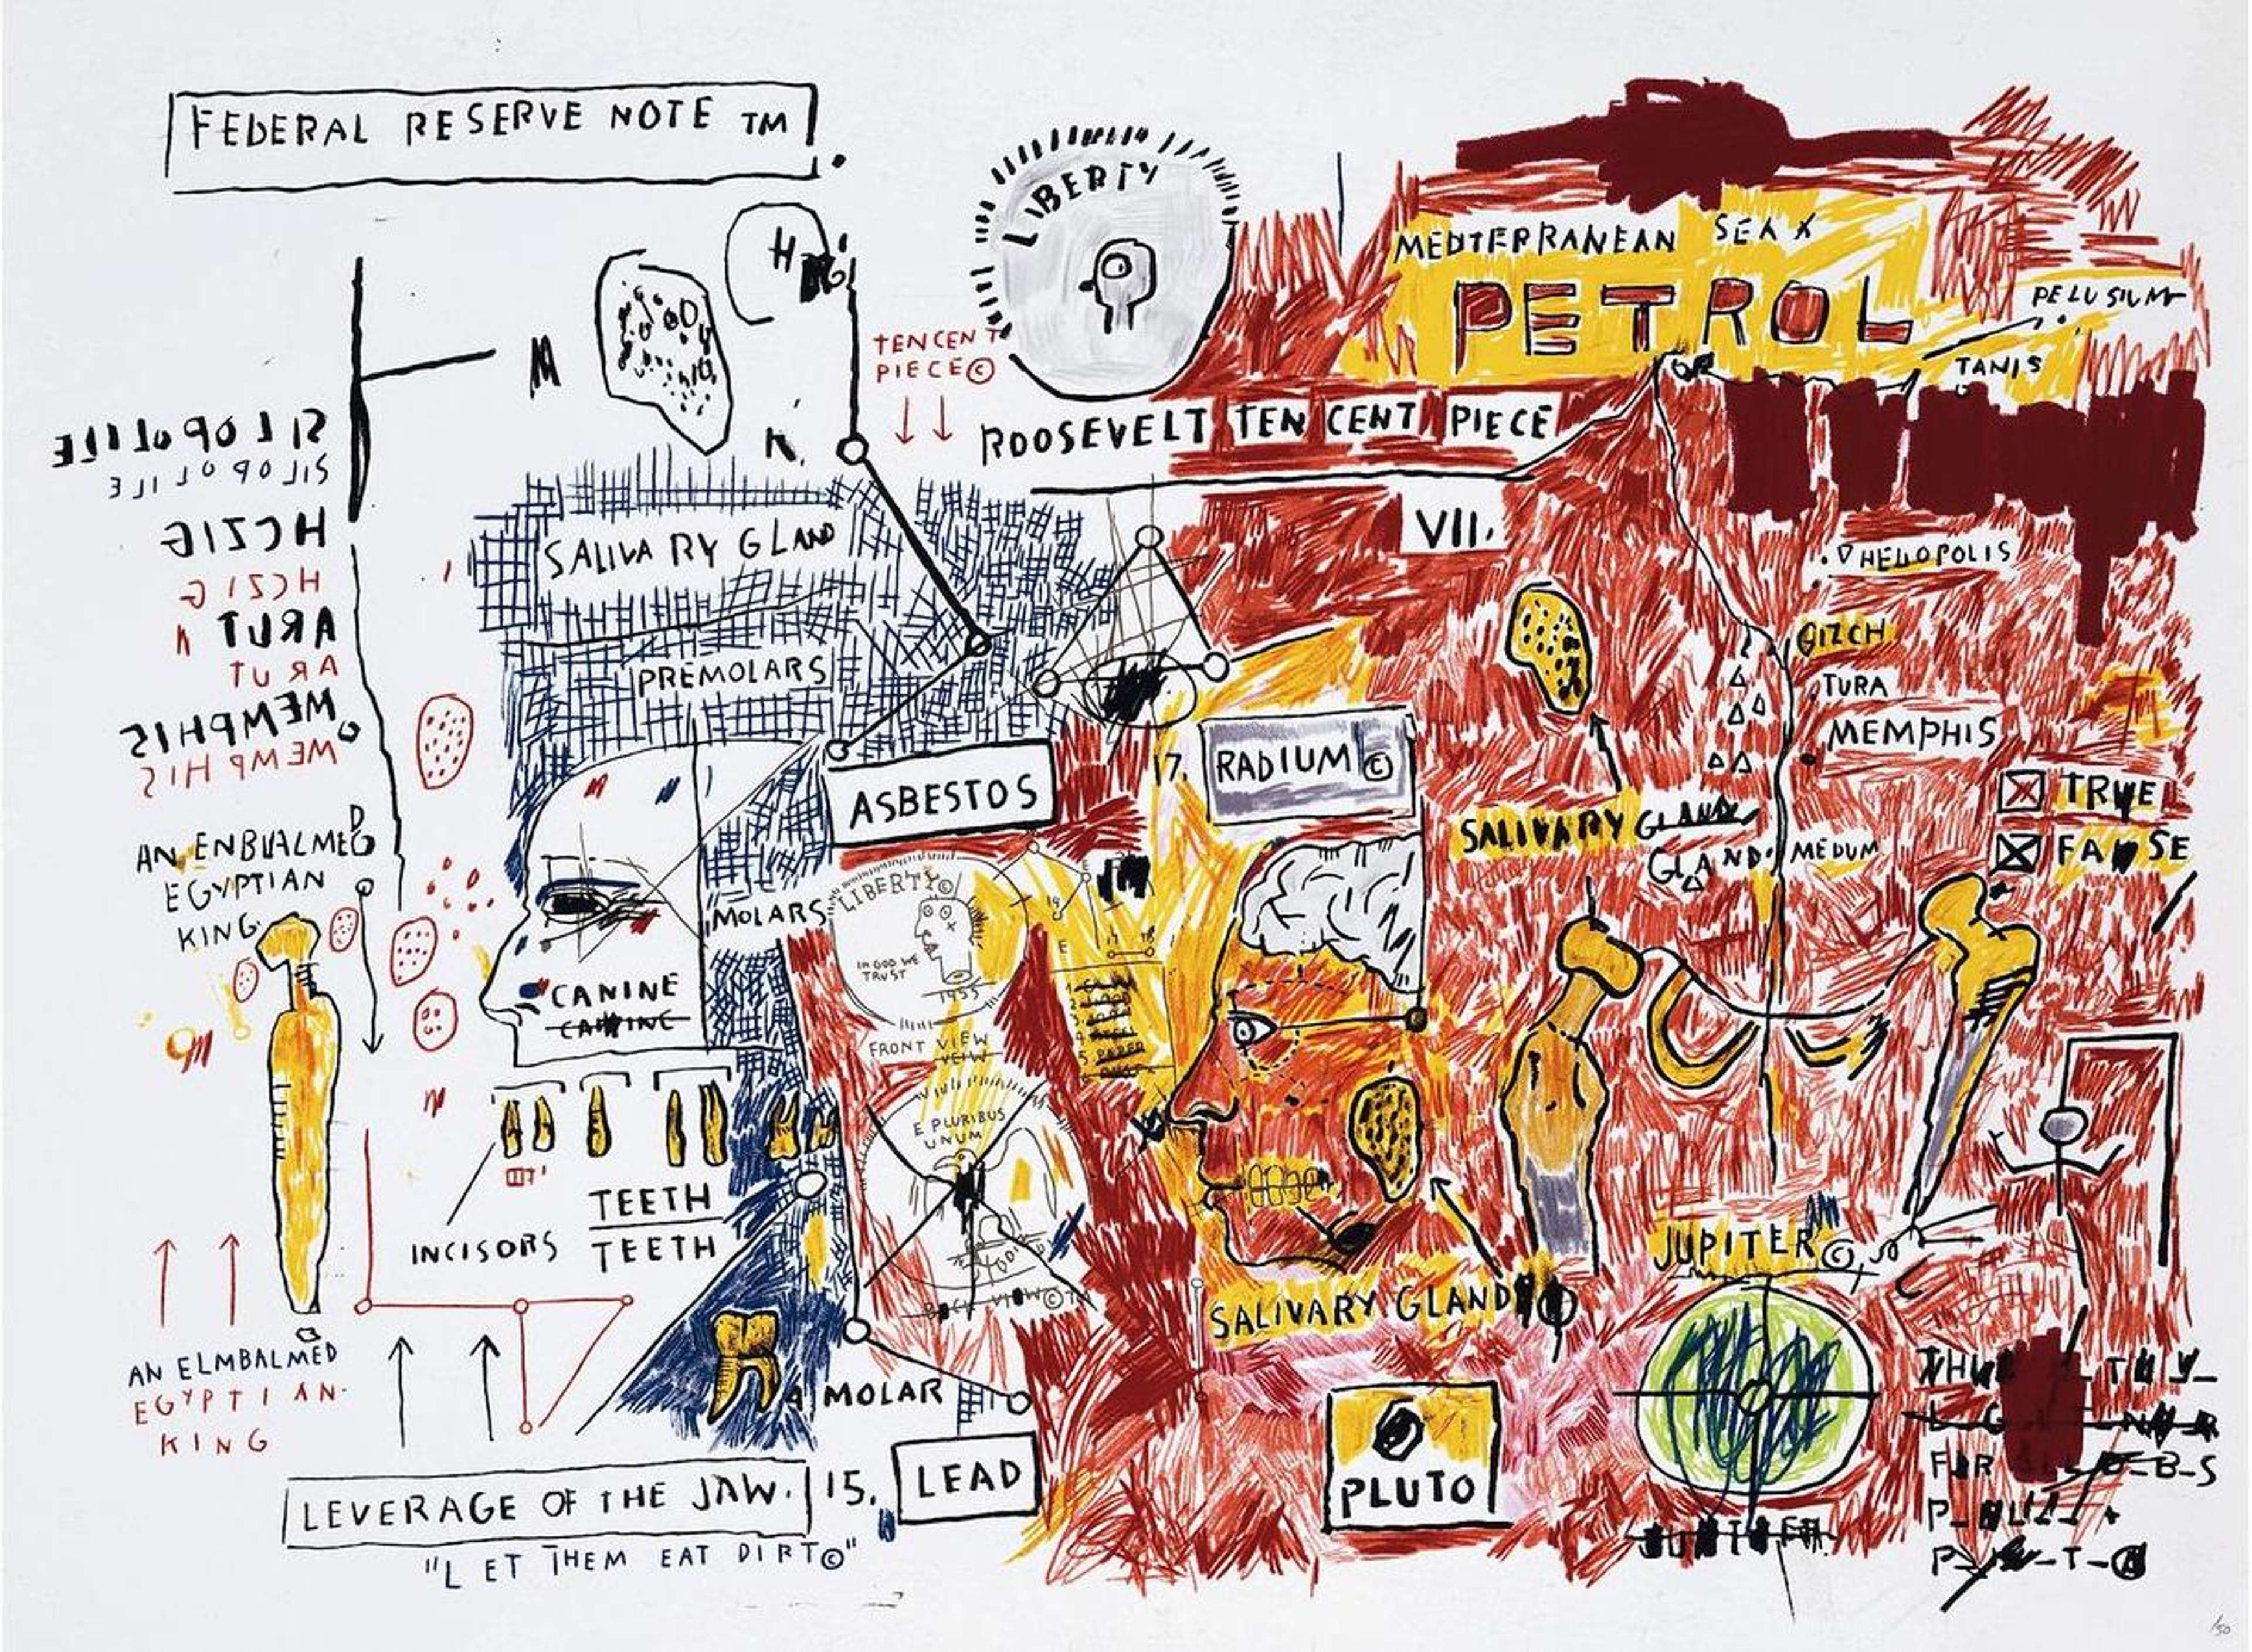 FEDERAL RESERVE NOTE TM
LIBERTY
H
M
K.
TEN CENT
PIECE©
ROOSEVELT TEN CENT PIECE
MEDITERRANEAN SEA X
PETROL
PELUSIUM
TANIS
VII.
HELIOPOLIS
GIZCH
TURA
MEMPHIS
MEDUM
TRUE
FALSE
HCZIG
HCZIG
ARUT
ARUT
MEMPHIS
MEMPHIS
SALIVARY GLAND
PREMOLARS
ASBESTOS
17.
RADIUM ©
SALIVARY GLAND
GLAND.
AN ENBLALMED
EGYPTIAN
KING.
MOLARS
CANINE
CANINE
LIBERTY©
IN GOD WE
TRUST
1955
FRONT VIEW
VEIW
E
5. PAPER
E PLURIBUS
UNUM
BACK VIEW© TM
TEETH
TEETH
INCISORS
SALIVARY GLAND
JUPITER©
AN ELMBALMED
EGYPTIAN.
KING
A MOLAR
LEAD
PLUTO
LEVERAGE OF THE JAW. 15.
"LET THEM EAT DIRT©"
JUPITER.
/50